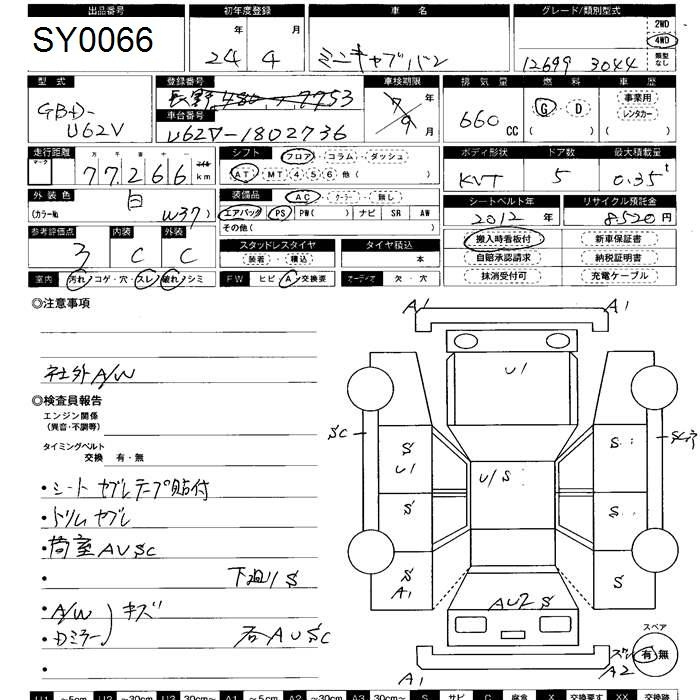 出品番号 初年度登録 車名 グレード/類別型式
SY0066 24年 4月 ミニキャブバン 12699 3044 2WD 4WD 類型なし
型式 登録番号 車検期限 排気量 燃料 車歴
GBD-U62V 長野 480 7953 7年9月 660CC G・D ( ) 事業用 レンタカー ( )
車台番号
U62V-1802736
走行距離 シフト フロア・コラム・ダッシュ ボディ形状 ドア数 最大積載量
マーク 万 千 百 十 一 マイル
77,266km AT MT 4 5 6 他( ) KVT 5 0.35t
外装色 装備品 AC・クーラー・無し シートベルト年 リサイクル預託金
(カラーNo. 白 W37) エアバッグ PS PW( ) ナビ SR AW 2012年 8,520円
その他( )
参考評価点 内装 外装 スタッドレスタイヤ タイヤ積込 搬入時看板付 新車保証書
3 C C 装着・積込 本 自賠承認請求 納税証明書
室内 汚れ・コゲ・穴・スレ・破れ・シミ FW ヒビ・A・交換要 オーディオ 欠・穴 抹消受付可 充電ケーブル
◎注意事項
社外A/W
◎検査員報告
エンジン関係
(異音・不調等)
タイミングベルト
交換 有・無
・シート ヤブレテープ貼付
・トリムヤブレ
・荷室AUSC
・ 下廻りS
・A/W キズ
・Dミラー 右AUSC
・
A1 A1
U1
SC
S U1 U/S S
S S
S A1 S
AU2 S
A1 A2
スペア
有 無
U1 ~5cm U2 ~30cm U3 30cm~ A1 ~5cm A2 ~30cm A3 30cm~ S サビ C 腐食 X 交換要す XX 交換跡